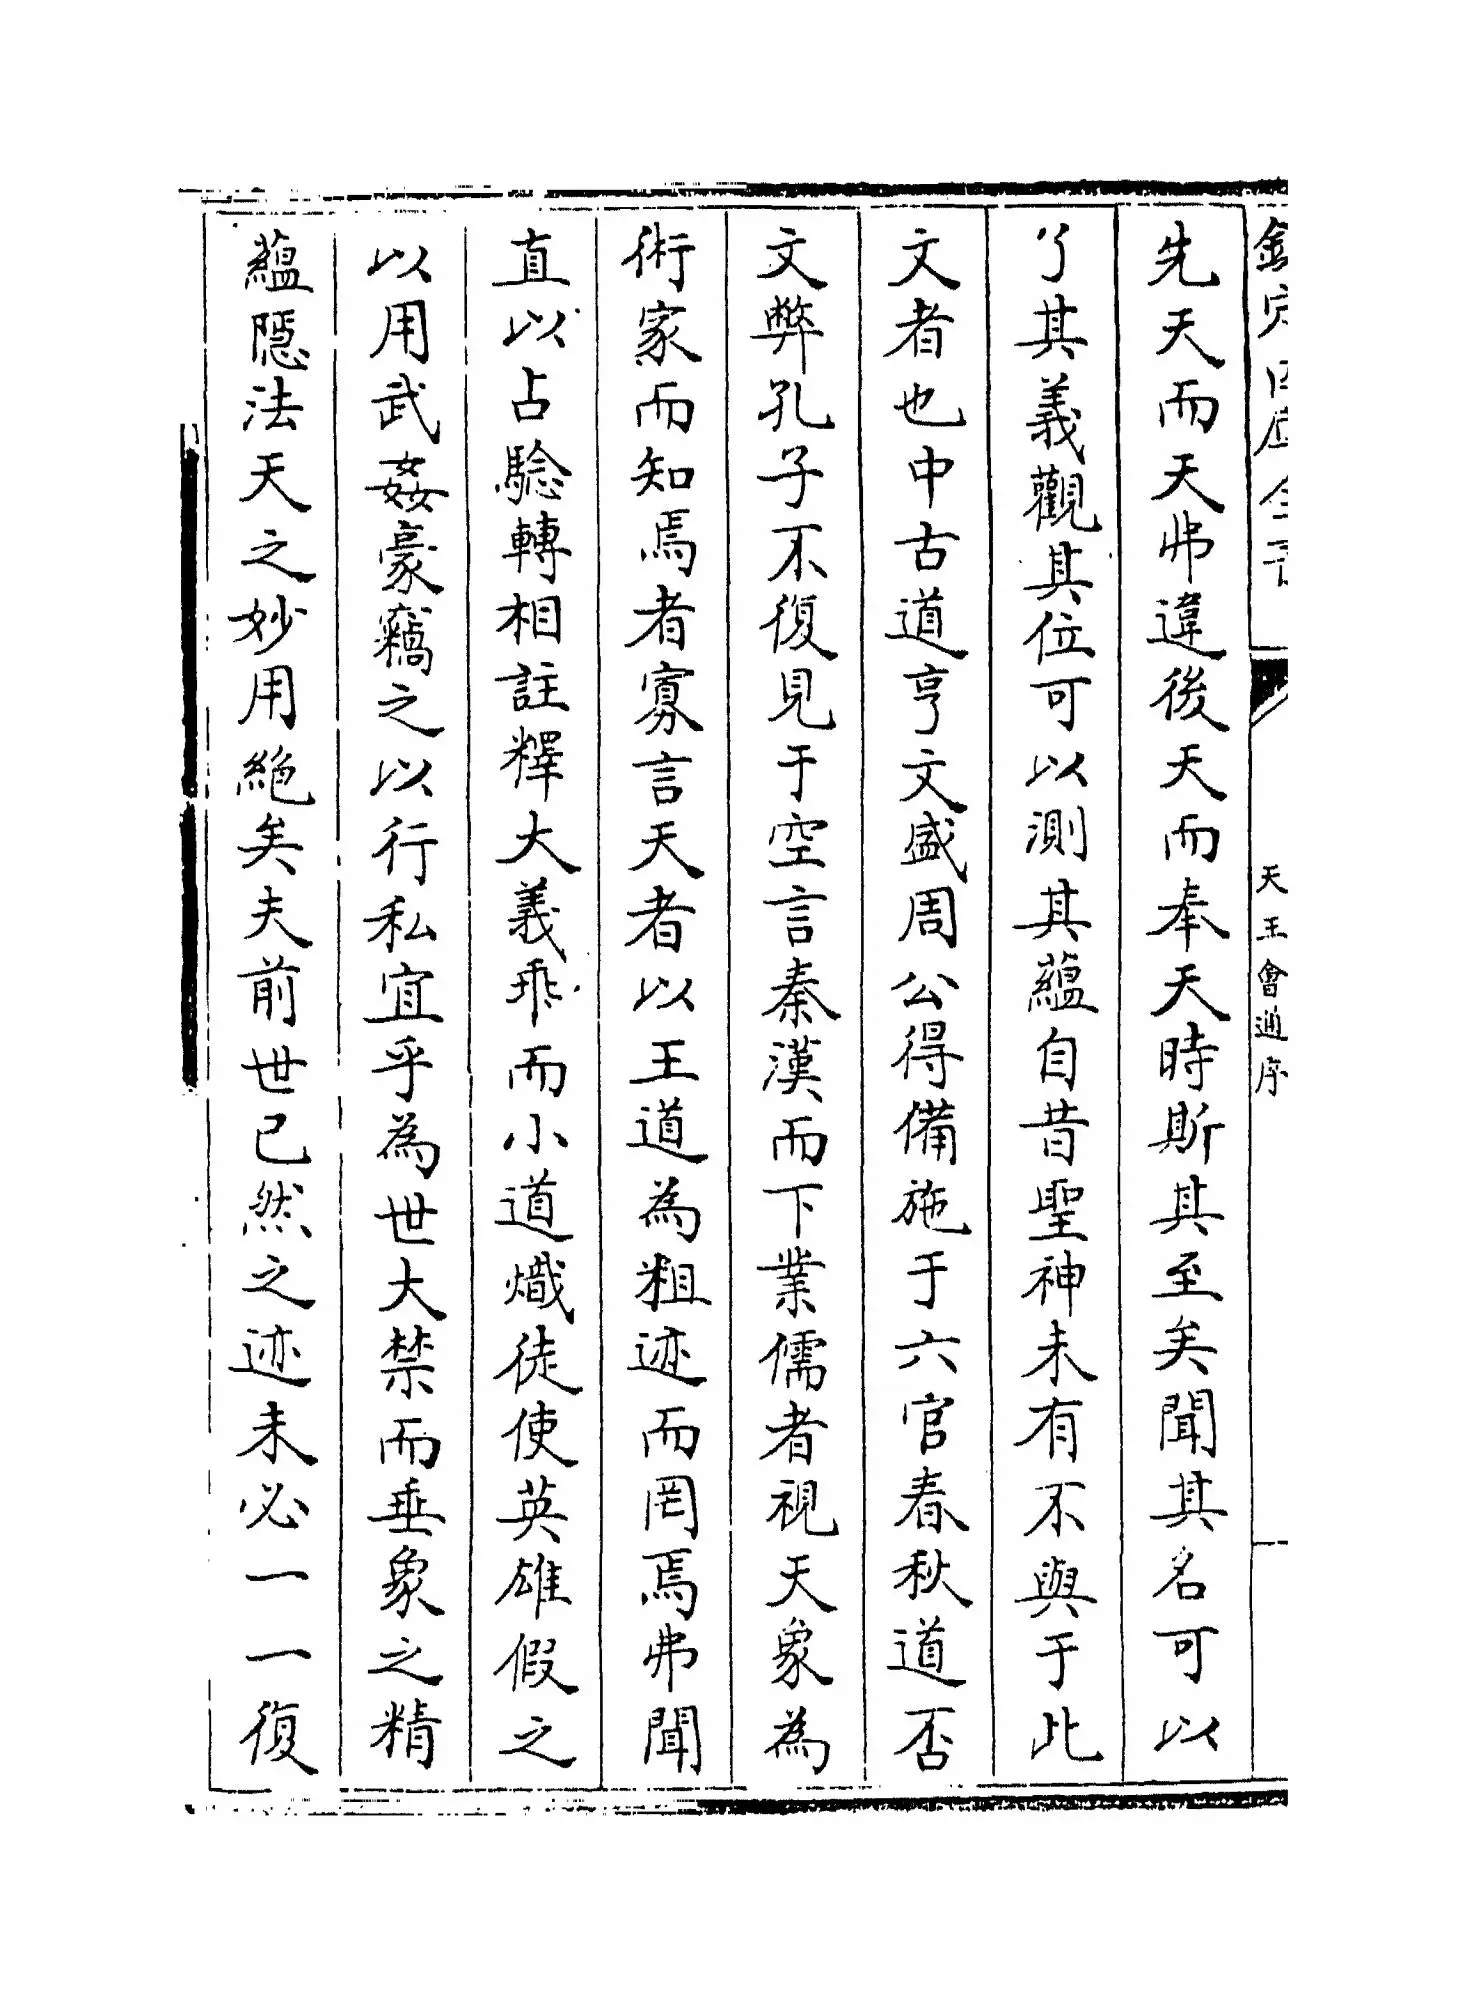 欽定四庫全書
天王會通序
先天而天弗違後天而奉天時斯其至矣聞其名可以
了其義觀其位可以測其蘊自昔聖神未有不與于此
文者也中古道亨文盛周公得備施于六官春秋道否
文弊孔子不復見于空言秦漢而下業儒者視天象為
術家而知焉者寡言天者以王道為粗迹而罔焉弗聞
直以占騐轉相註釋大義乖而小道熾徒使英雄假之
以用武姦豪竊之以行私宜乎為世大禁而垂象之精
蘊隱法天之妙用絶矣夫前世已然之迹未必一一復